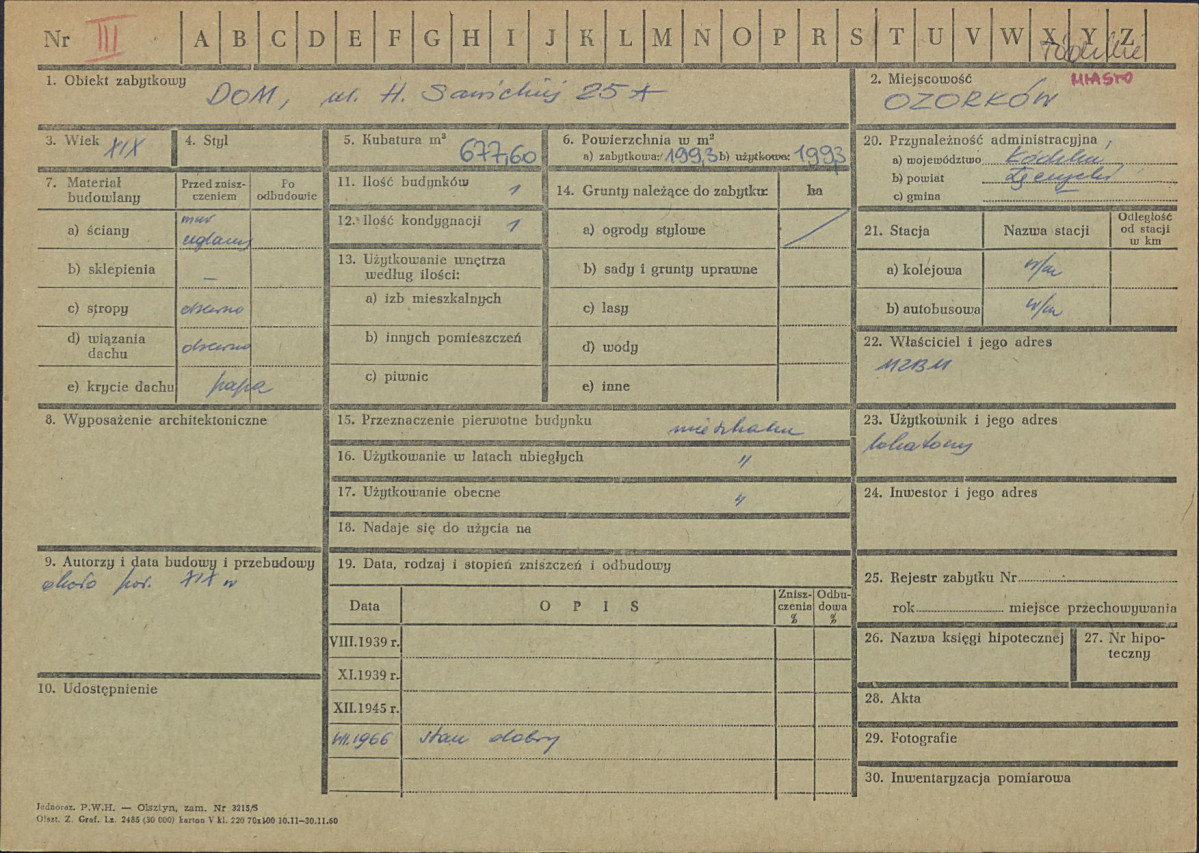 Nr III A B C D E F G H I J K L M N O P R S T U V W X Y Z
łódzkie
1. Obiekt zabytkowy
DOM, ul. H. Sawickiej 25A
2. Miejscowość
MIASTO
OZORKÓW
3. Wiek XIX
4. Styl
5. Kubatura m³
677,60
6. Powierzchnia w m²
a) zabytkowa: 199,3 b) użytkowa: 199,3
20. Przynależność administracyjna
a) województwo łódzkie
b) powiat Łęczycki
c) gmina
7. Materiał budowlany
Przed zniszczeniem
Po odbudowie
a) ściany
mur
ceglany
b) sklepienia —
c) stropy drewno
d) wiązania dachu drewno
e) krycie dachu papa
11. Ilość budynków 1
12. Ilość kondygnacji 1
13. Użytkowanie wnętrza według ilości:
a) izb mieszkalnych
b) innych pomieszczeń
c) piwnic
14. Grunty należące do zabytku:
ha
a) ogrody stylowe
b) sady i grunty uprawne
c) lasy
d) wody
e) inne
21. Stacja
Nazwa stacji
Odległość od stacji w km
a) kolejowa w/m
b) autobusowa w/m
22. Właściciel i jego adres
MZBM
8. Wyposażenie architektoniczne
15. Przeznaczenie pierwotne budynku mieszkalne
16. Użytkowanie w latach ubiegłych "
17. Użytkowanie obecne "
18. Nadaje się do użycia na
23. Użytkownik i jego adres
lokatorzy
24. Inwestor i jego adres
9. Autorzy i data budowy i przebudowy
około poł. XIX w
19. Data, rodzaj i stopień zniszczeń i odbudowy
Data
O P I S
Zniszczenia %
Odbudowa %
VIII.1939 r.
XI.1939 r.
XII.1945 r.
VII.1966 stan dobry
10. Udostępnienie
25. Rejestr zabytku Nr
rok miejsce przechowywania
26. Nazwa księgi hipotecznej
27. Nr hipoteczny
28. Akta
29. Fotografie
30. Inwentaryzacja pomiarowa
Jednoraz. P.W.H. — Olsztyn, zam. Nr 3215/S
Olszt. Z. Graf. Lz. 2485 (30 000) karton V kl. 220 70x100 10.11—30.11.60